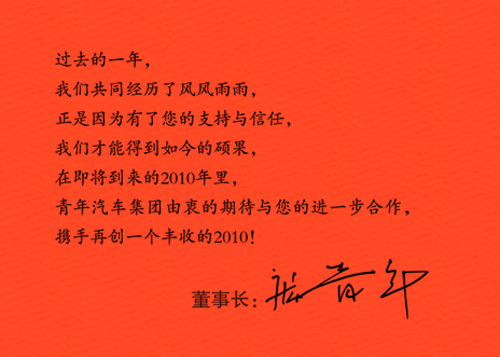 过去的一年，
我们共同经历了风风雨雨，
正是因为有了您的支持与信任，
我们才能得到如今的硕果，
在即将到来的2010年里，
青年汽车集团由衷的期待与您的进一步合作，
携手再创一个丰收的2010！
董事长：庞青年